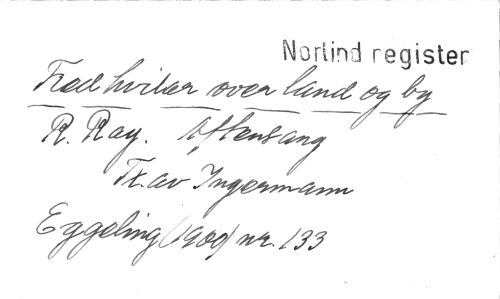 Norlind register
Fred hvilar over land og by
R. Ray. Aftensang
Tk. av Ingermann
Eggeling (1909) nr. 133